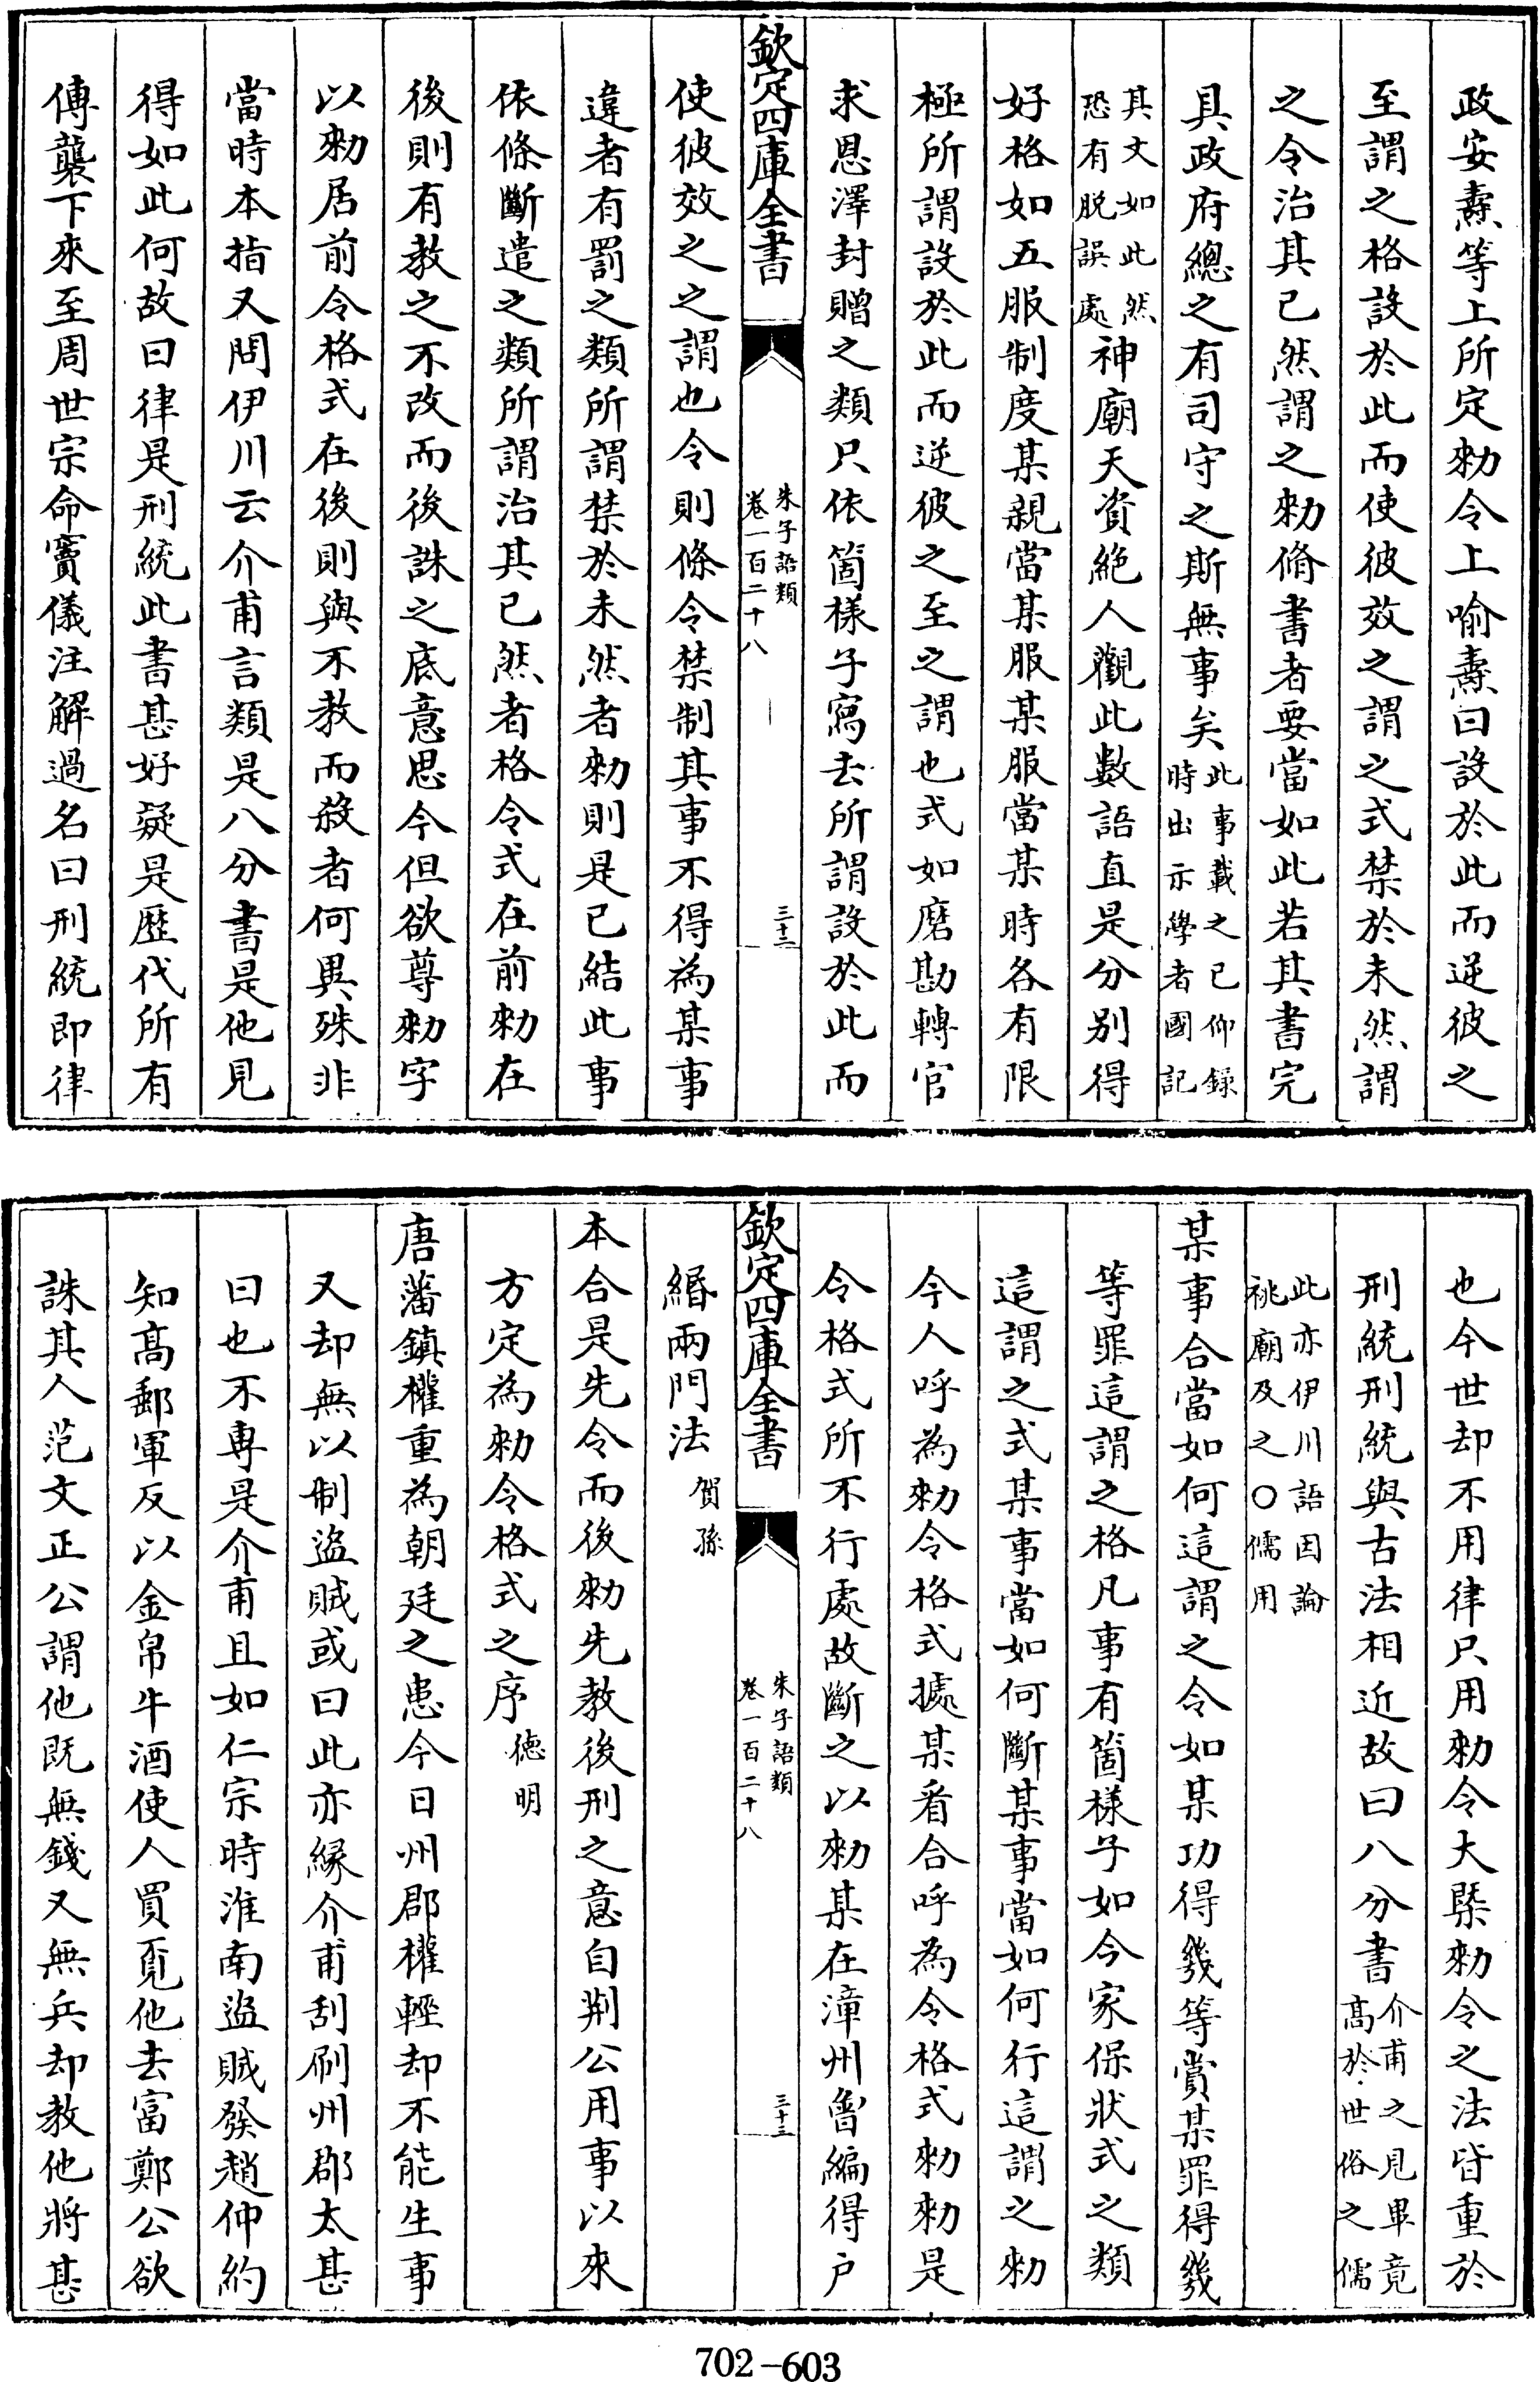 政安燾等上所定勅令上喻燾曰設於此而逆彼之
至謂之格設於此而使彼效之謂之式禁於未然謂
之令治其已然謂之勅脩書者要當如此若其書完
具政府總之有司守之斯無事矣此事載之已仰録
時出示學者國記
其文如此然
恐有脱誤處神廟天資絶人觀此數語直是分别得
好格如五服制度某親當某服某服當某時各有限
極所謂設於此而逆彼之至之謂也式如磨勘轉官
求恩澤封贈之類只依箇樣子寫去所謂設於此而
欽定四庫全書
朱子語類
卷一百二十八
三十二
使彼效之之謂也令則條令禁制其事不得為某事
違者有罰之類所謂禁於未然者勅則是已結此事
依條斷遣之類所謂治其已然者格令式在前勅在
後則有教之不改而後誅之底意思今但欲尊勅字
以勅居前令格式在後則與不教而殺者何異殊非
當時本指又問伊川云介甫言類是八分書是他見
得如此何故曰律是刑統此書甚好疑是歴代所有
傳襲下來至周世宗命竇儀注解過名曰刑統即律
也今世却不用律只用勅令大槩勅令之法皆重於
刑統刑統與古法相近故曰八分書介甫之見畢竟
高於世俗之儒
此亦伊川語因論
祧廟及之○儒用
某事合當如何這謂之令如某功得幾等賞某罪得幾
等罪這謂之格凡事有箇樣子如今家保狀式之類
這謂之式某事當如何斷某事當如何行這謂之勅
今人呼為勅令格式據某看合呼為令格式勅勅是
令格式所不行處故斷之以勅某在漳州曾編得户
欽定四庫全書
朱子語類
卷一百二十八
三十三
緡兩門法賀孫
本合是先令而後勅先教後刑之意自荆公用事以來
方定為勅令格式之序德明
唐藩鎮權重為朝廷之患今日州郡權輕却不能生事
又却無以制盜賊或曰此亦縁介甫刮刷州郡太甚
曰也不専是介甫且如仁宗時淮南盜賊發趙仲約
知髙郵軍反以金帛牛酒使人買覓他去富鄭公欲
誅其人范文正公謂他既無錢又無兵却教他將甚
702-603